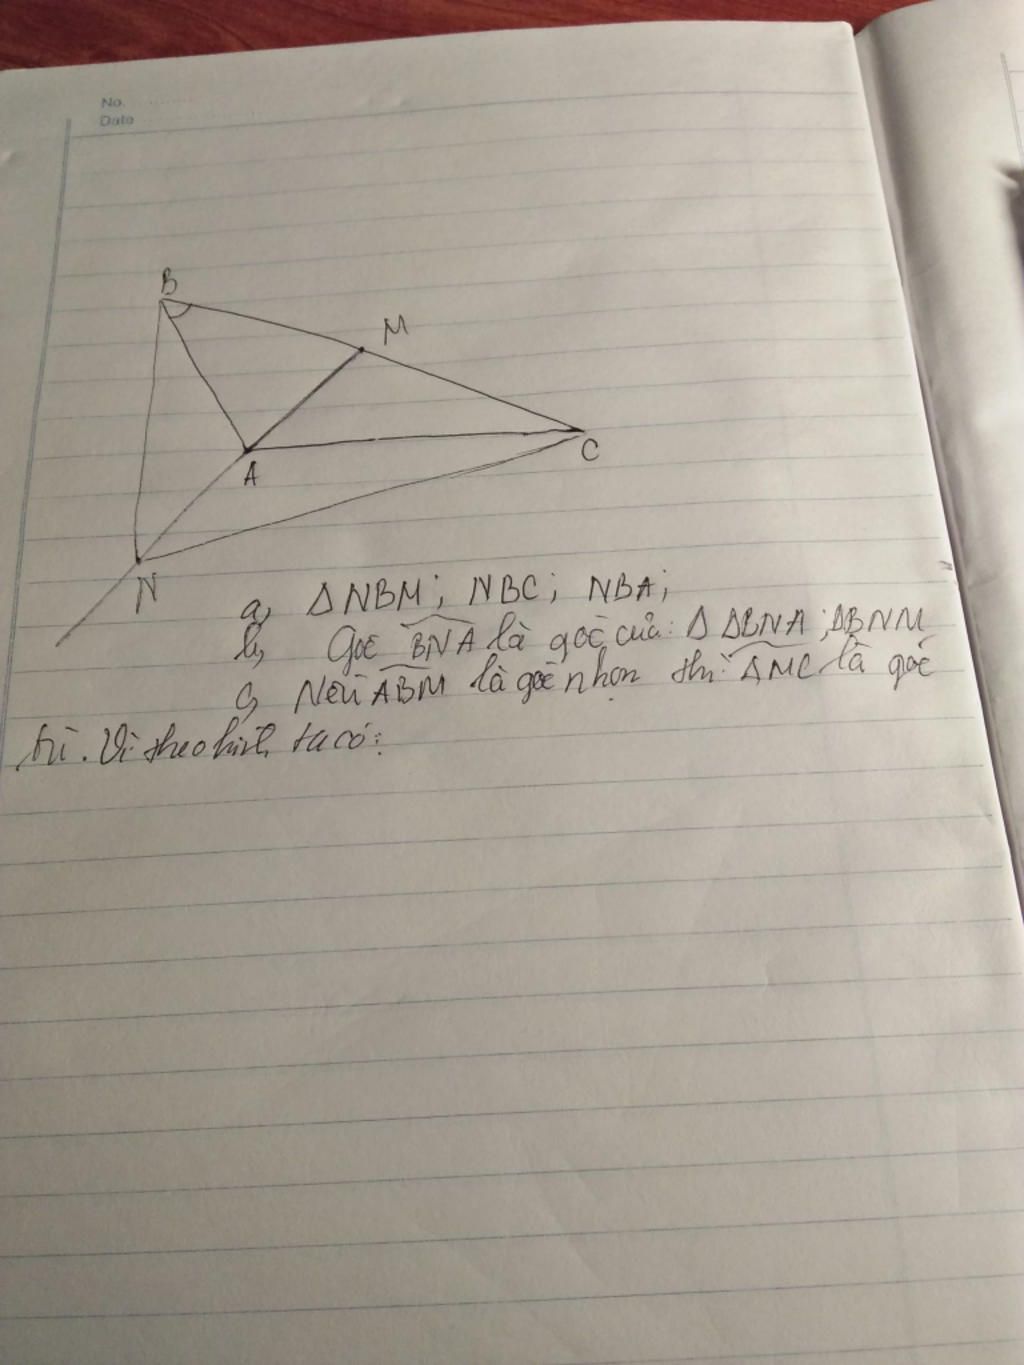 No.
Date
B
M
C
A
N
a, ΔNBM; NBC; NBA;
b, Góc BNA là góc của: Δ ΔBNA; ΔBNM
c, Nếu ABM là góc nhọn thì AMC là góc
tù. Vì theo hình ta có: